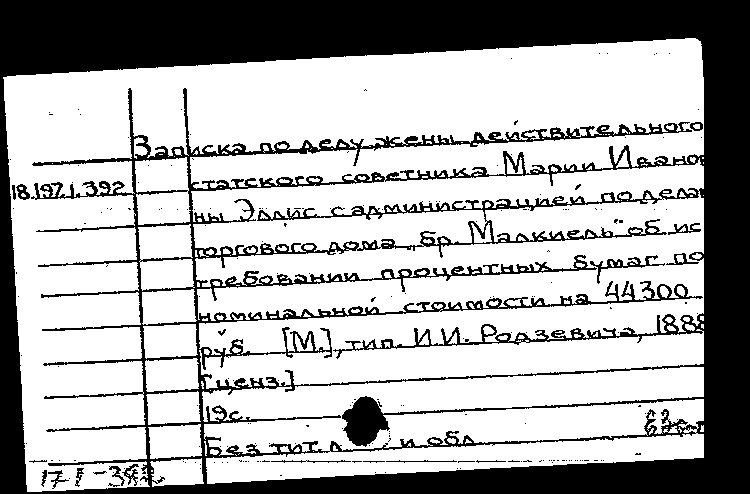 Записка по делу жены действительного
18.197.1.392 статского советника Марии Иванов
ны Эллис с администрацией по делам
торгового дома „бр. Малкиель" об ис
требовании процентных бумаг по
номинальной стоимости на 44300
руб. [М.], тип. И.И. Родзевича, 1888
[ценз.]
19с.
Без тит. л и обл